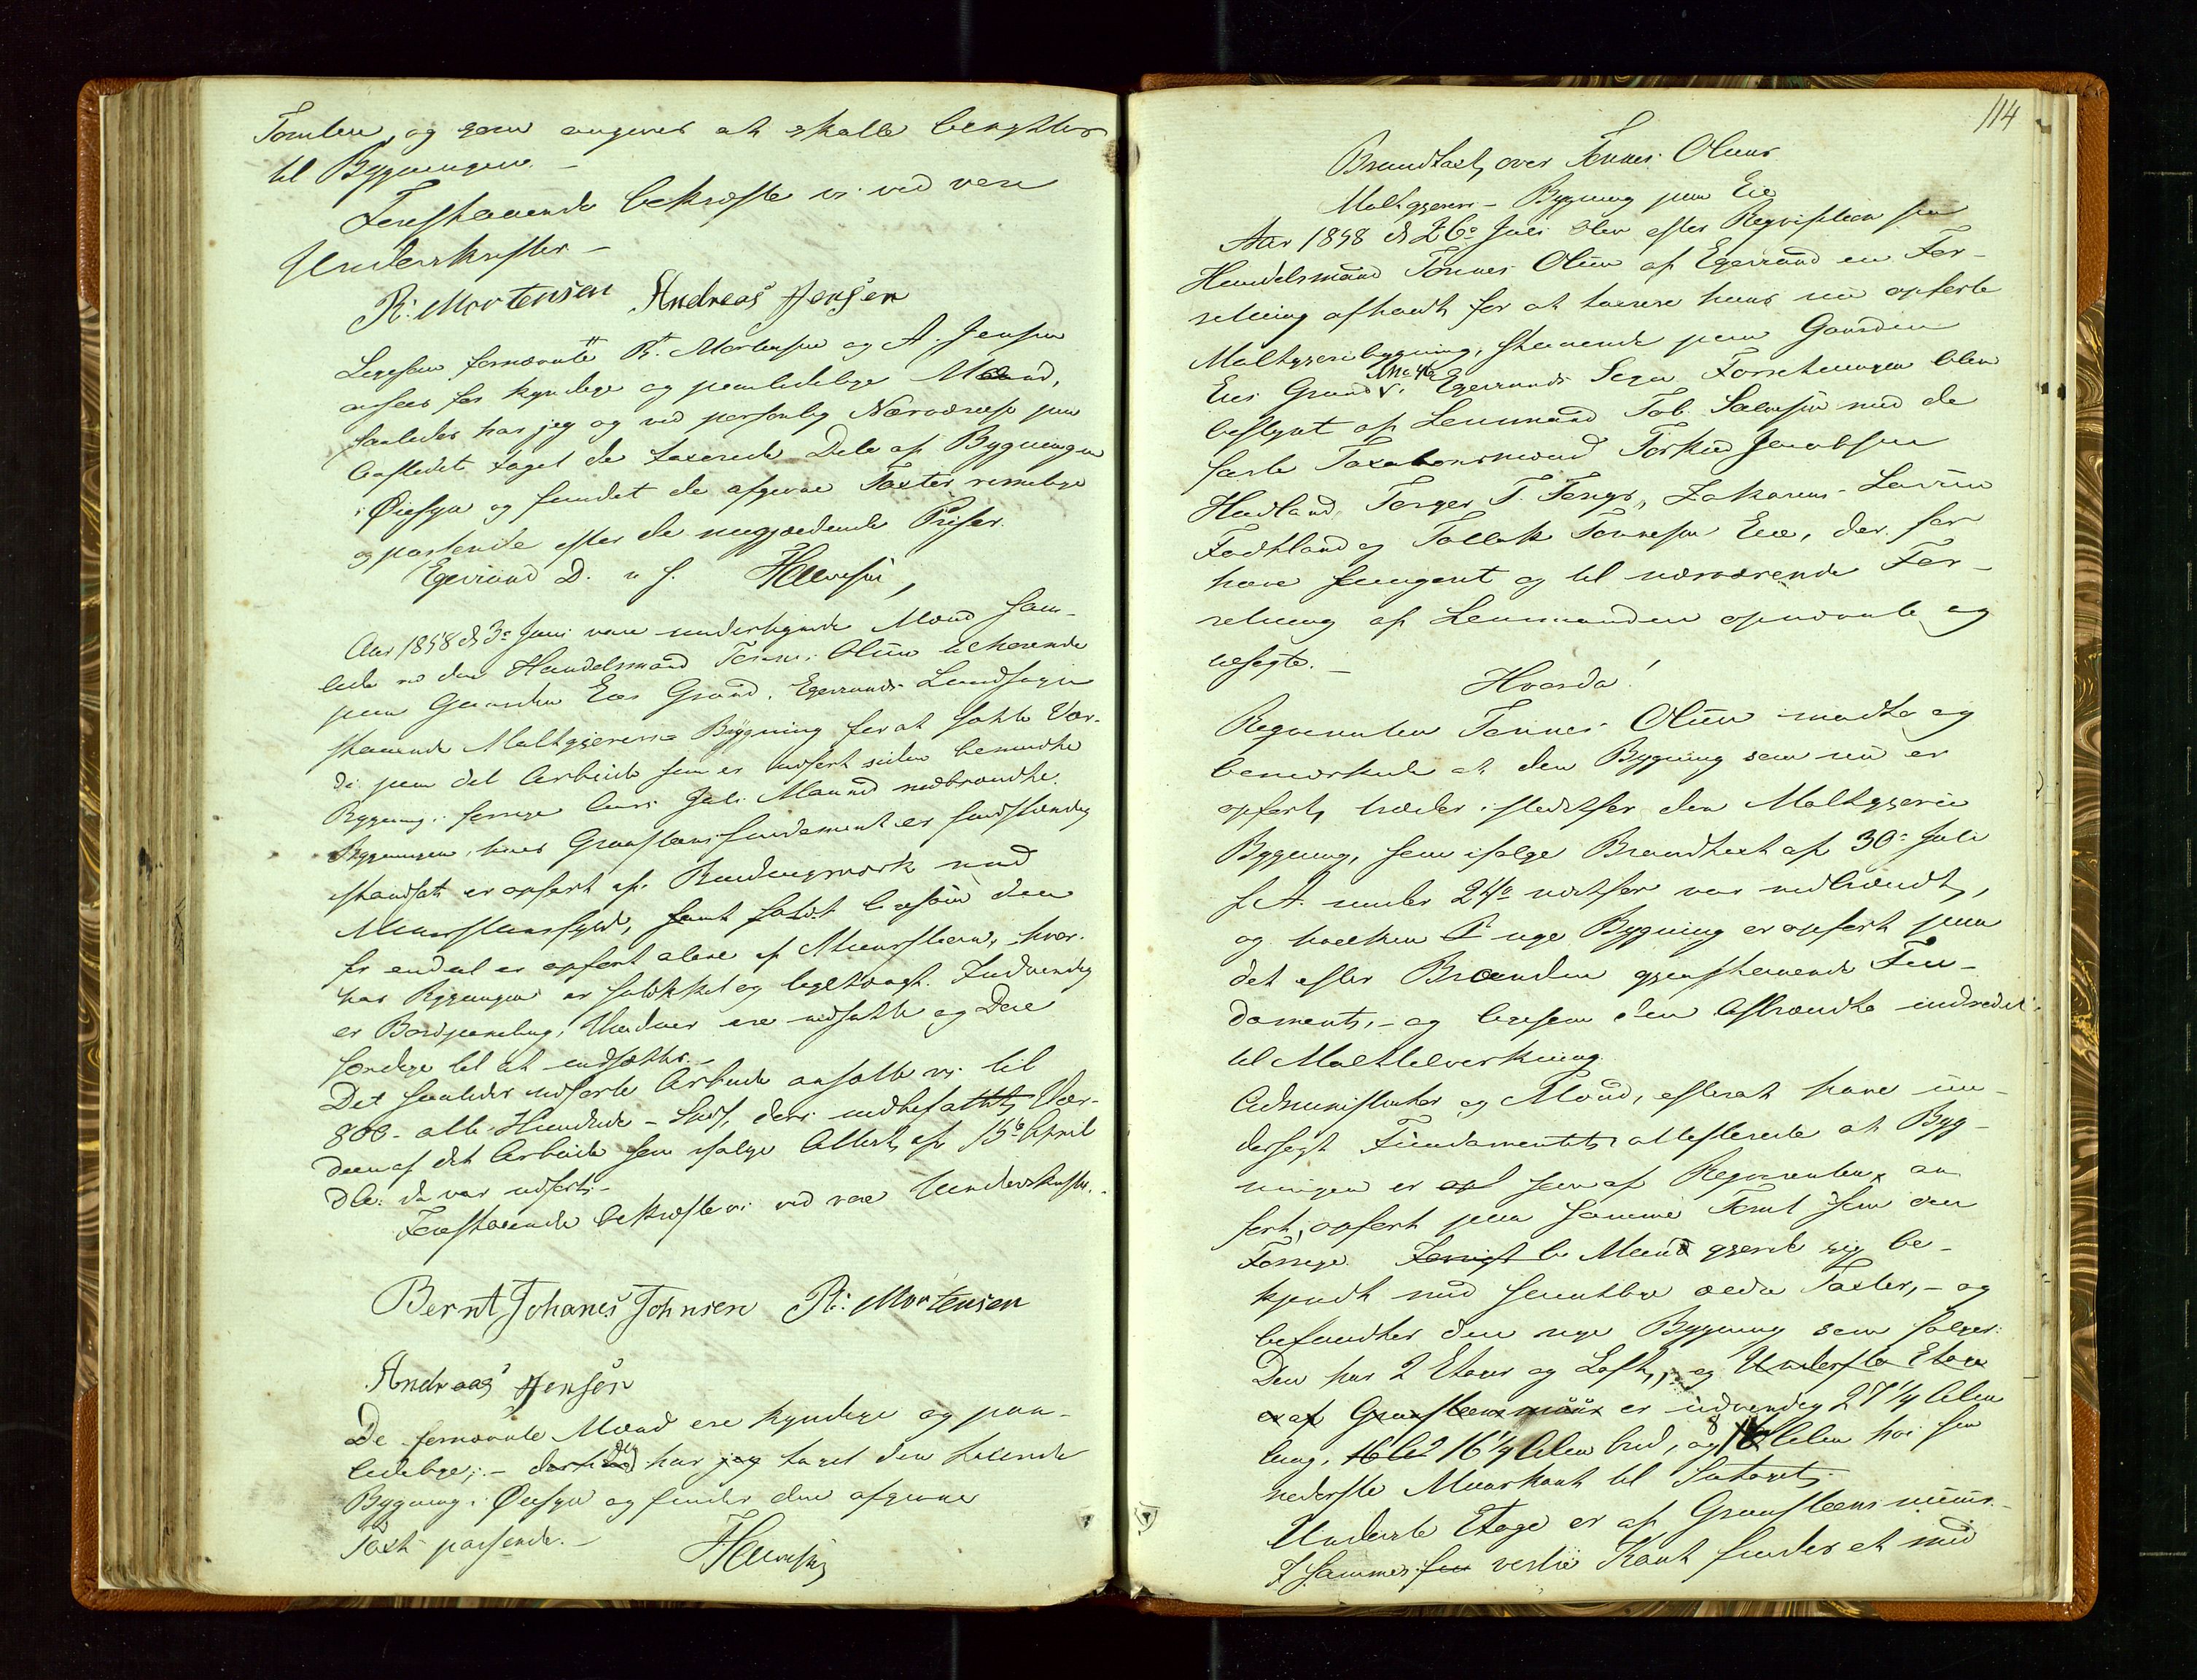 Tomten, og som angives at skulle benyttes
til Bygningen. -
Forestaaende bekræfte vi ved vore
Underskrifter -
R: Mortensen Andreas Jensen
Ligesom fornævnte R. Mortensen og A. Jensen
ansees for kyndige og paalidelige Mænd,
saaledes har jeg og ved personlig Nærværelse paa
Aastedet taget de taxerede Dele af Bygningen
i Øiesyn og fundet de afgivne Taxter rimelige
og passende efter de nugjældende Priser.
Egersund D. u. s.
Aar 1858 d 3e Juni vare undertegnede Mænd sam-
lede ved den Handelsmand Tønnes Olsen tilhørende
paa Gaarden Eies Grund i Egersunds Landsogn
staaende Maltgjørerie Bygning for at sætte Vær-
di paa det Arbeide som er udført siden benævnte
Bygning i forrige Aars Juli Maaned nedbrændte.
Bygningen, hvis Graasteens Fundament er fuldstændig
istandsat er opført af Bindingsværk med
Muursteensfyld, samt ligesaa den
ene endeel er opført alene af Muursteen, hvor-
hos Bygningen er og teglhængt. Indvendig
er Bordpaneling, Vinduer ere indsatte og Døre
færdige til at indsættes. -
Det saaledes udførte Arbeide ansætte vi til
800 - otte Hundrede - Spd, deri indbefattet Vær-
dien af det Arbeide som ifølge Attest af 15de April
d.A. da var udført. -
Forestaaende bekræfte vi ved vore Underskrifter.
Bernt Johanes Johnsen R: Mortensen
Andreas Jensen
De fornævnte Mænd ere kyndige og paa-
lidelige; - har jeg taget den taxerede
Bygning i Øiesyn og finder den afgivne
Taxt passende. -
114
Brandtaxt over Tønnes Olsens
Maltgjørerie - Bygning paa Eie
Aar 1858 d 26e Juli blev efter Reqvisition fra
Handelsmand Tønnes Olsen af Egersund en For-
retning afholdt for at taxere hans nu opførte
Maltgjøreribygning, staaende paa Gaarden
Eies Grund i Egersunds Sogn. Forretningen blev
bestyret af Lensmand Tob. Salvesen med de
faste Taxationsmænd Torkild Jacobsen
Hadland, Torger T. Tengs, Zakarias Larsen
og Tollak Tønnesen Eie, der før
have fungeret og til nærværende For-
retning af Lensmanden opnævnte og
tilsagte. -
Hvorda!
Reqvirenten Tønnes Olsen mødte og
bemærkede at den Bygning som nu er
opført, træder istedetfor den Maltgjørerie
Bygning, som ifølge Brandtaxt af 30e Juli
f.A. under 24de næstefter var nedbrændt,
og hvilken nye Bygning er opført paa
det efter Branden gjenstaaende Fun-
dament, - og ligesom den Afbrændte indredet
til Malttilvirkning.
Administrator og Mænd, efterat have un-
dersøgt Fundamentet, attesterede at Byg-
ningen er som af Reqvirenten an-
ført, opført paa samme Tomt som den
Forrige. Mænd gjorde sig be-
kjendt med samtlige ældre Taxter, - og
befandtes den nye Bygning som følger:
Den har 2 Etager og Loft, og Underste Etage
er af Graasteensmuur er udvendig 27 1/4 Alen
lang, 16 1/4 Alen bred, og 8 Alen høi fra
nederste Muurkant til Tagets.
Underste Etage er af Graasteens muur. -
I Sammes vestre Kant findes et med